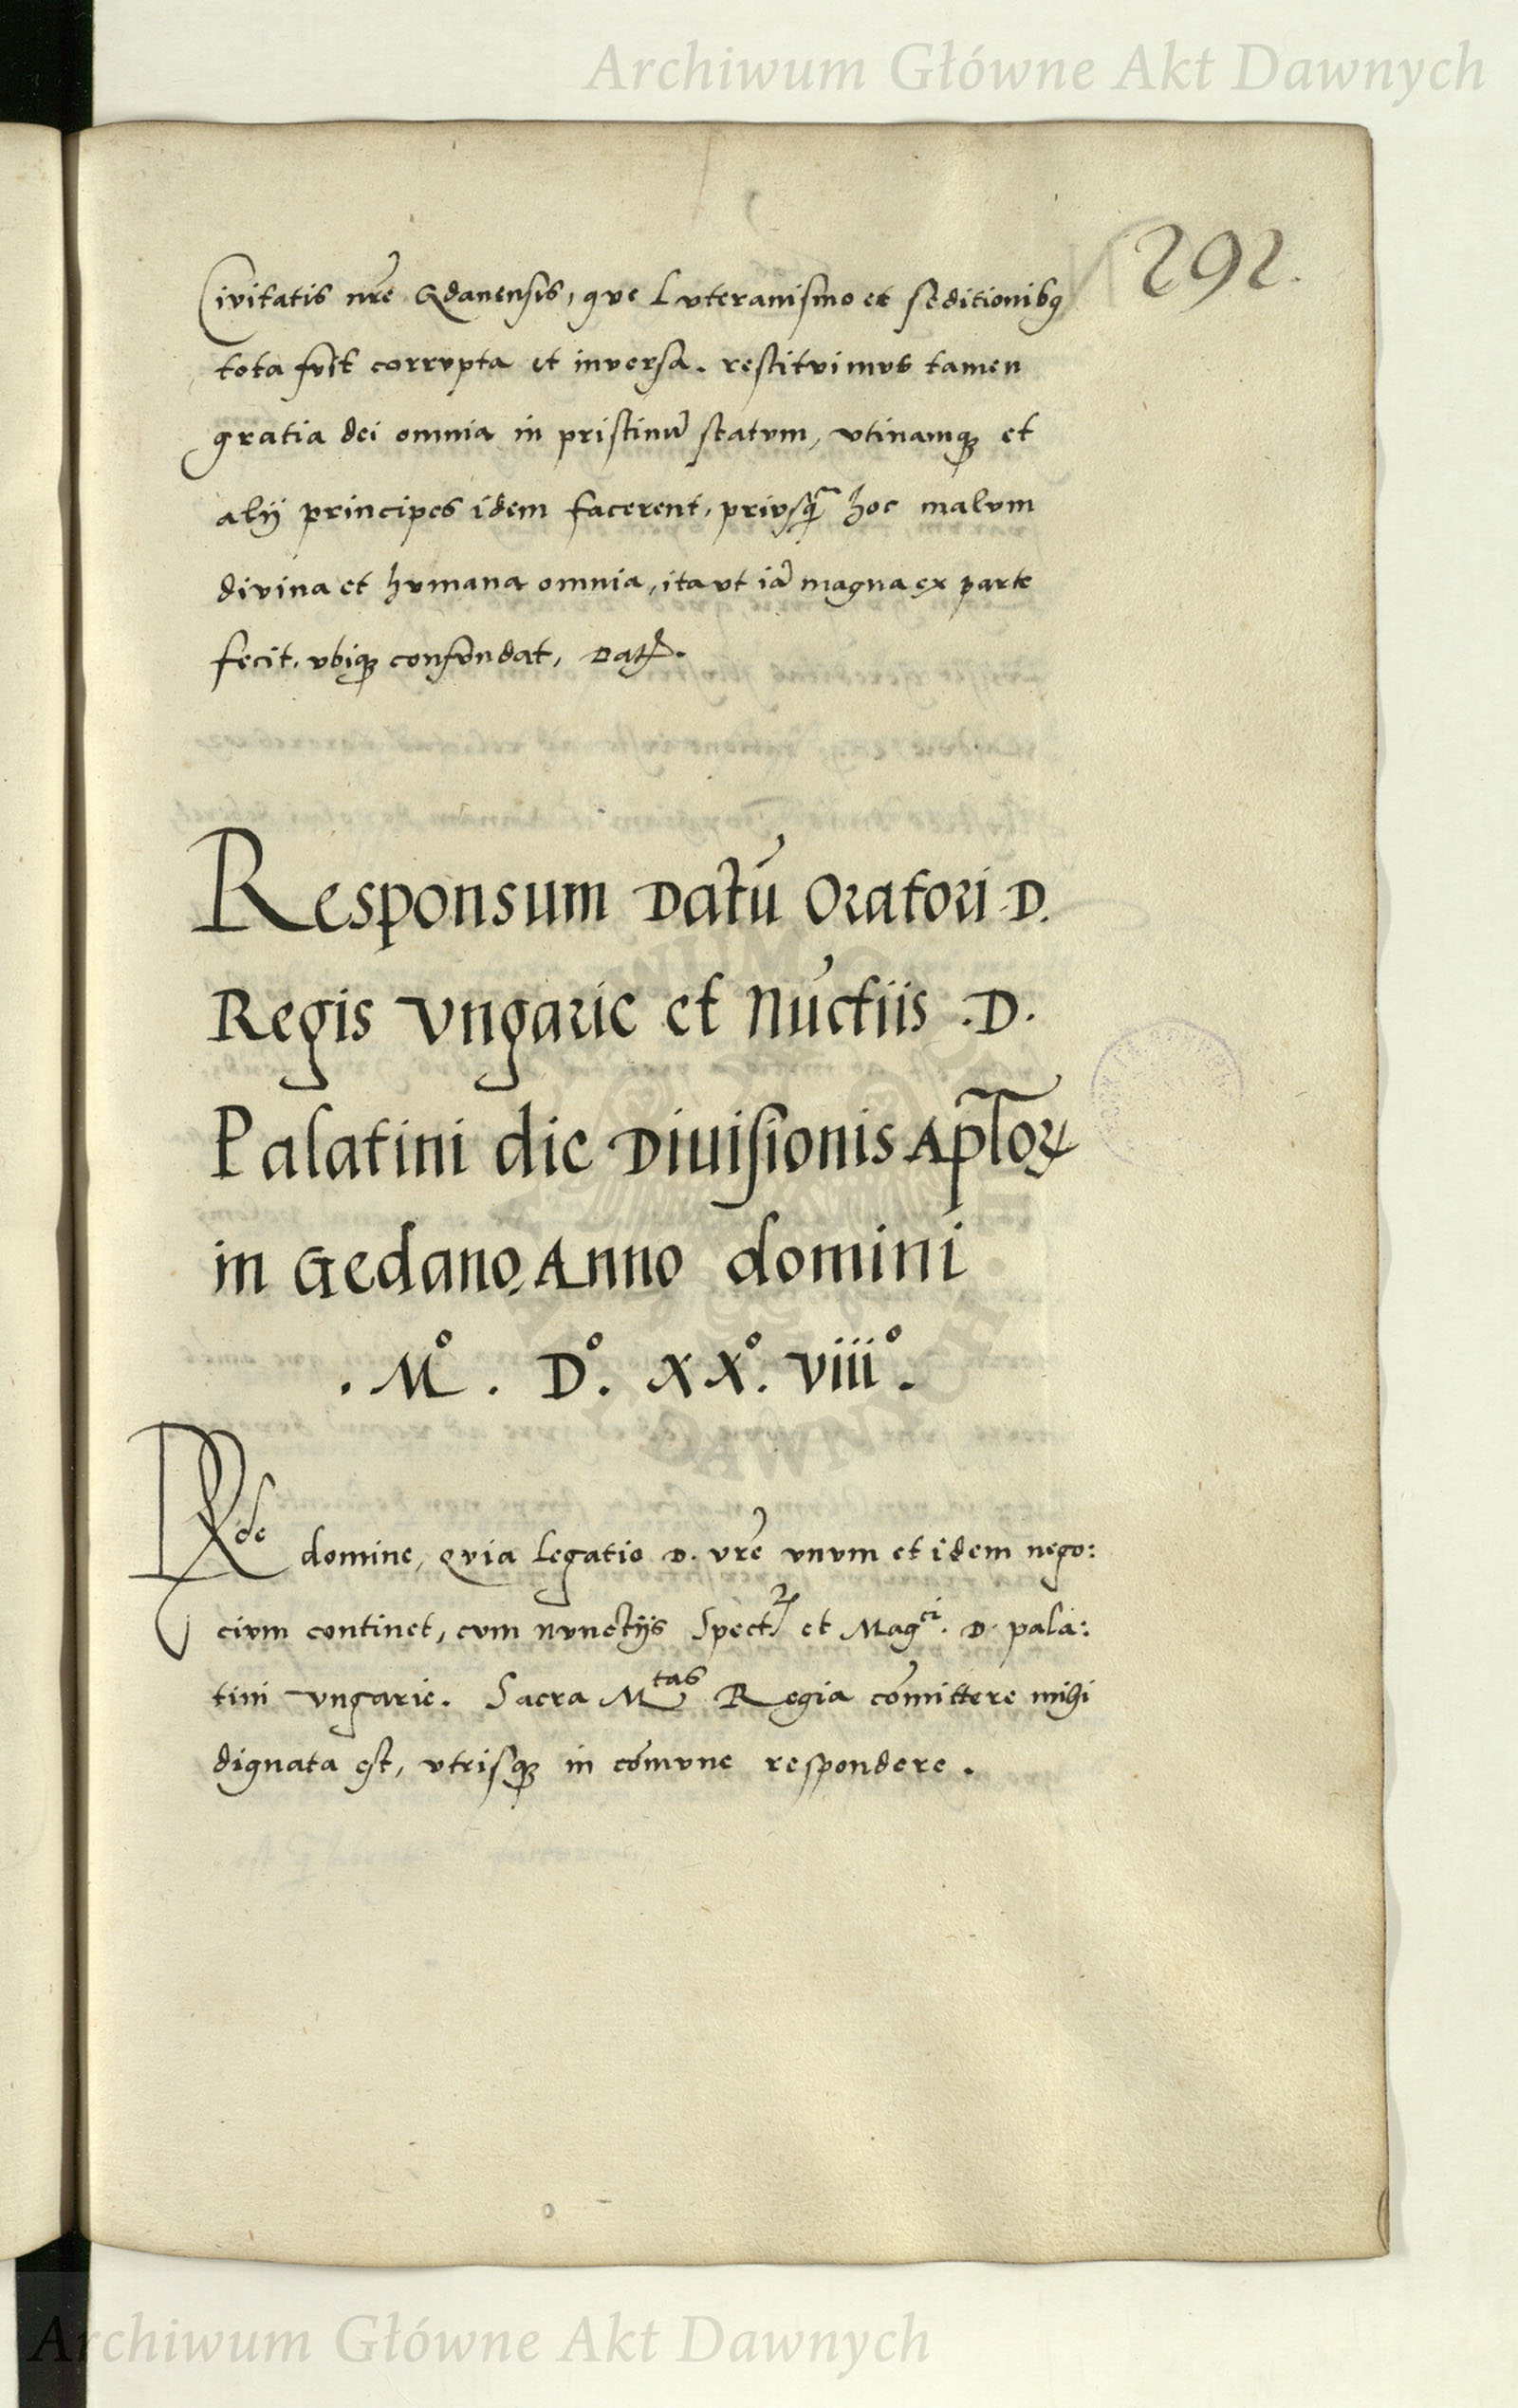 Archiwum Główne Akt Dawnych
292.
Civitatis nr̃e Gdanensis, que Lvteranismo et seditionibq
tota fvit corrvpta et inversa. restitvimvs tamen
gratia dei omnia in pristinũ statvm, vtinamqꝫ et
alij principes idem facerent, privsq̃ hoc malvm
divina et hvmana omnia, ita vt iã magna ex parte
fecit, vbiqꝫ confvndat, Datꝭ.
Responsum Datũ Oratori D.
Regis Vngarie et Nũctiis .D.
Palatini die Diuisionis Apl̃oꝝ
in Gedano. Anno domini
.Mº. Dº. XXº. viiiº.
Rde domine, Qvia legatio D. vr̃e vnvm et idem nego:
civm continet, cvm nvnctijs Spectꝭ et Magci. D. pala:
tini vngarie. Sacra Mtas Regia cõmittere mihi
dignata est, vtrisqꝫ in cõmvne respondere.
Archiwum Główne Akt Dawnych